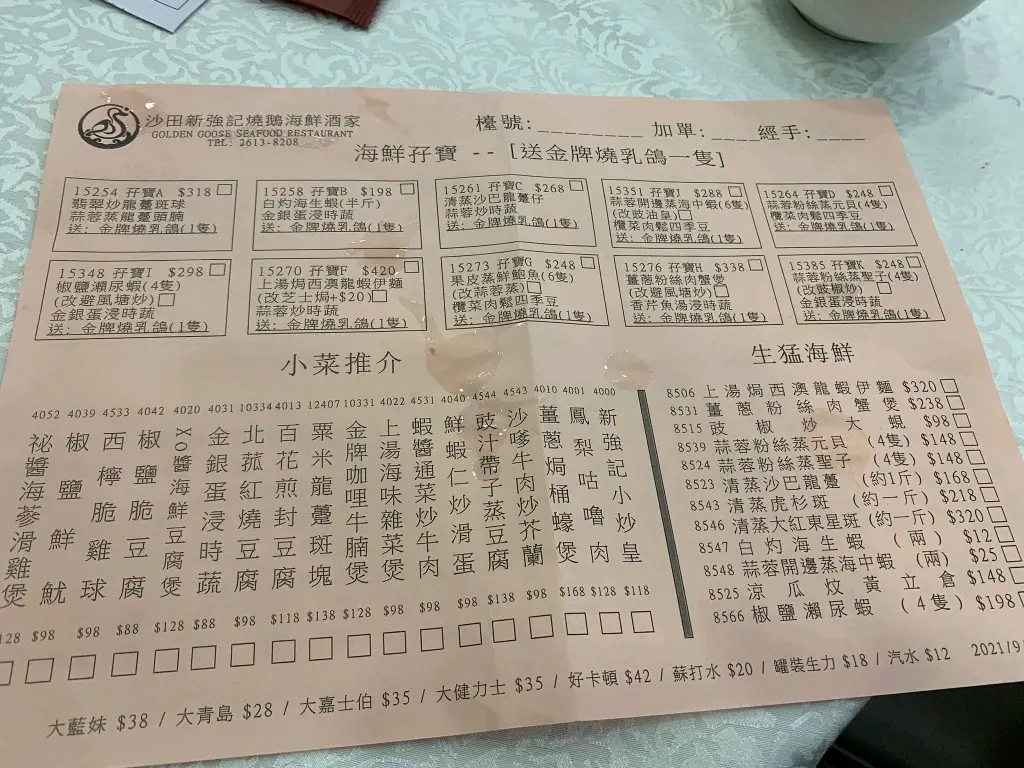 沙田新強記燒鵝海鮮酒家
GOLDEN GOOSE SEAFOOD RESTAURANT
TEL: 2613-8208
檯號:_________ 加單:____經手:____
海鮮孖寶 -- [送金牌燒乳鴿一隻]
15254 孖寶A $318
翡翠炒龍躉斑球
蒜蓉蒸龍躉頭腩
送: 金牌燒乳鴿(1隻)
15258 孖寶B $198
白灼海生蝦(半斤)
金銀蛋浸時蔬
送: 金牌燒乳鴿(1隻)
15261 孖寶C $268
清蒸沙巴龍躉仔
蒜蓉炒時蔬
送: 金牌燒乳鴿(1隻)
15351 孖寶J $288
蒜蓉開邊蒸海中蝦(6隻)
(改豉油皇)
欖菜肉鬆四季豆
送: 金牌燒乳鴿(1隻)
15264 孖寶D $248
蒜蓉粉絲蒸元貝(4隻)
欖菜肉鬆四季豆
送: 金牌燒乳鴿(1隻)
15348 孖寶I $298
椒鹽瀨尿蝦(4隻)
(改避風塘炒)
金銀蛋浸時蔬
送: 金牌燒乳鴿(1隻)
15270 孖寶F $420
上湯焗西澳龍蝦伊麵
(改芝士焗+$20)
蒜蓉炒時蔬
送: 金牌燒乳鴿(1隻)
15273 孖寶G $248
果皮蒸鮮鮑魚(6隻)
(改蒜蓉蒸)
欖菜肉鬆四季豆
送: 金牌燒乳鴿(1隻)
15276 孖寶H $338
薑蔥粉絲肉蟹煲
(改避風塘炒)
香芹魚湯浸時蔬
送: 金牌燒乳鴿(1隻)
15385 孖寶K $248
蒜蓉粉絲蒸聖子(4隻)
(改豉椒炒)
金銀蛋浸時蔬
送: 金牌燒乳鴿(1隻)
小菜推介
4000 新強記小炒皇 $118
4001 鳳梨咕嚕肉 $128
4010 薑蔥焗桶蠔煲 $168
4543 沙嗲牛肉炒芥蘭 $98
4544 豉汁帶子蒸豆腐 $138
4040 鮮蝦仁炒滑蛋 $98
4531 蝦醬通菜炒牛肉 $98
4022 上湯海味雜菜煲 $98
10331 金牌咖哩牛腩煲 $128
12407 粟米龍躉斑塊 $138
4013 百花煎封豆腐 $118
10334 北菰紅燒豆腐 $98
4031 金銀蛋浸時蔬 $88
4020 XO醬海鮮豆腐煲 $128
4042 椒鹽脆豆腐 $88
4533 西檸脆雞球 $98
4039 椒鹽鮮魷 $98
4052 祕醬海蔘滑雞煲 128
生猛海鮮
8506 上湯焗西澳龍蝦伊麵 $320
8531 薑蔥粉絲肉蟹煲 $238
8515 豉椒炒大蜆 $98
8539 蒜蓉粉絲蒸元貝 (4隻) $148
8524 蒜蓉粉絲蒸聖子 (4隻) $148
8523 清蒸沙巴龍躉 (約1斤) $168
8543 清蒸虎杉斑 (約一斤) $218
8546 清蒸大紅東星斑 (約一斤) $320
8547 白灼海生蝦 (兩) $12
8548 蒜蓉開邊蒸海中蝦 (兩) $25
8525 涼瓜炆黃立倉 $148
8566 椒鹽瀨尿蝦 (4隻) $198
大藍妹 $38 / 大青島 $28 / 大嘉士伯 $35 / 大健力士 $35 / 好卡頓 $42 / 蘇打水 $20 / 罐裝生力 $18 / 汽水 $12 2021/9